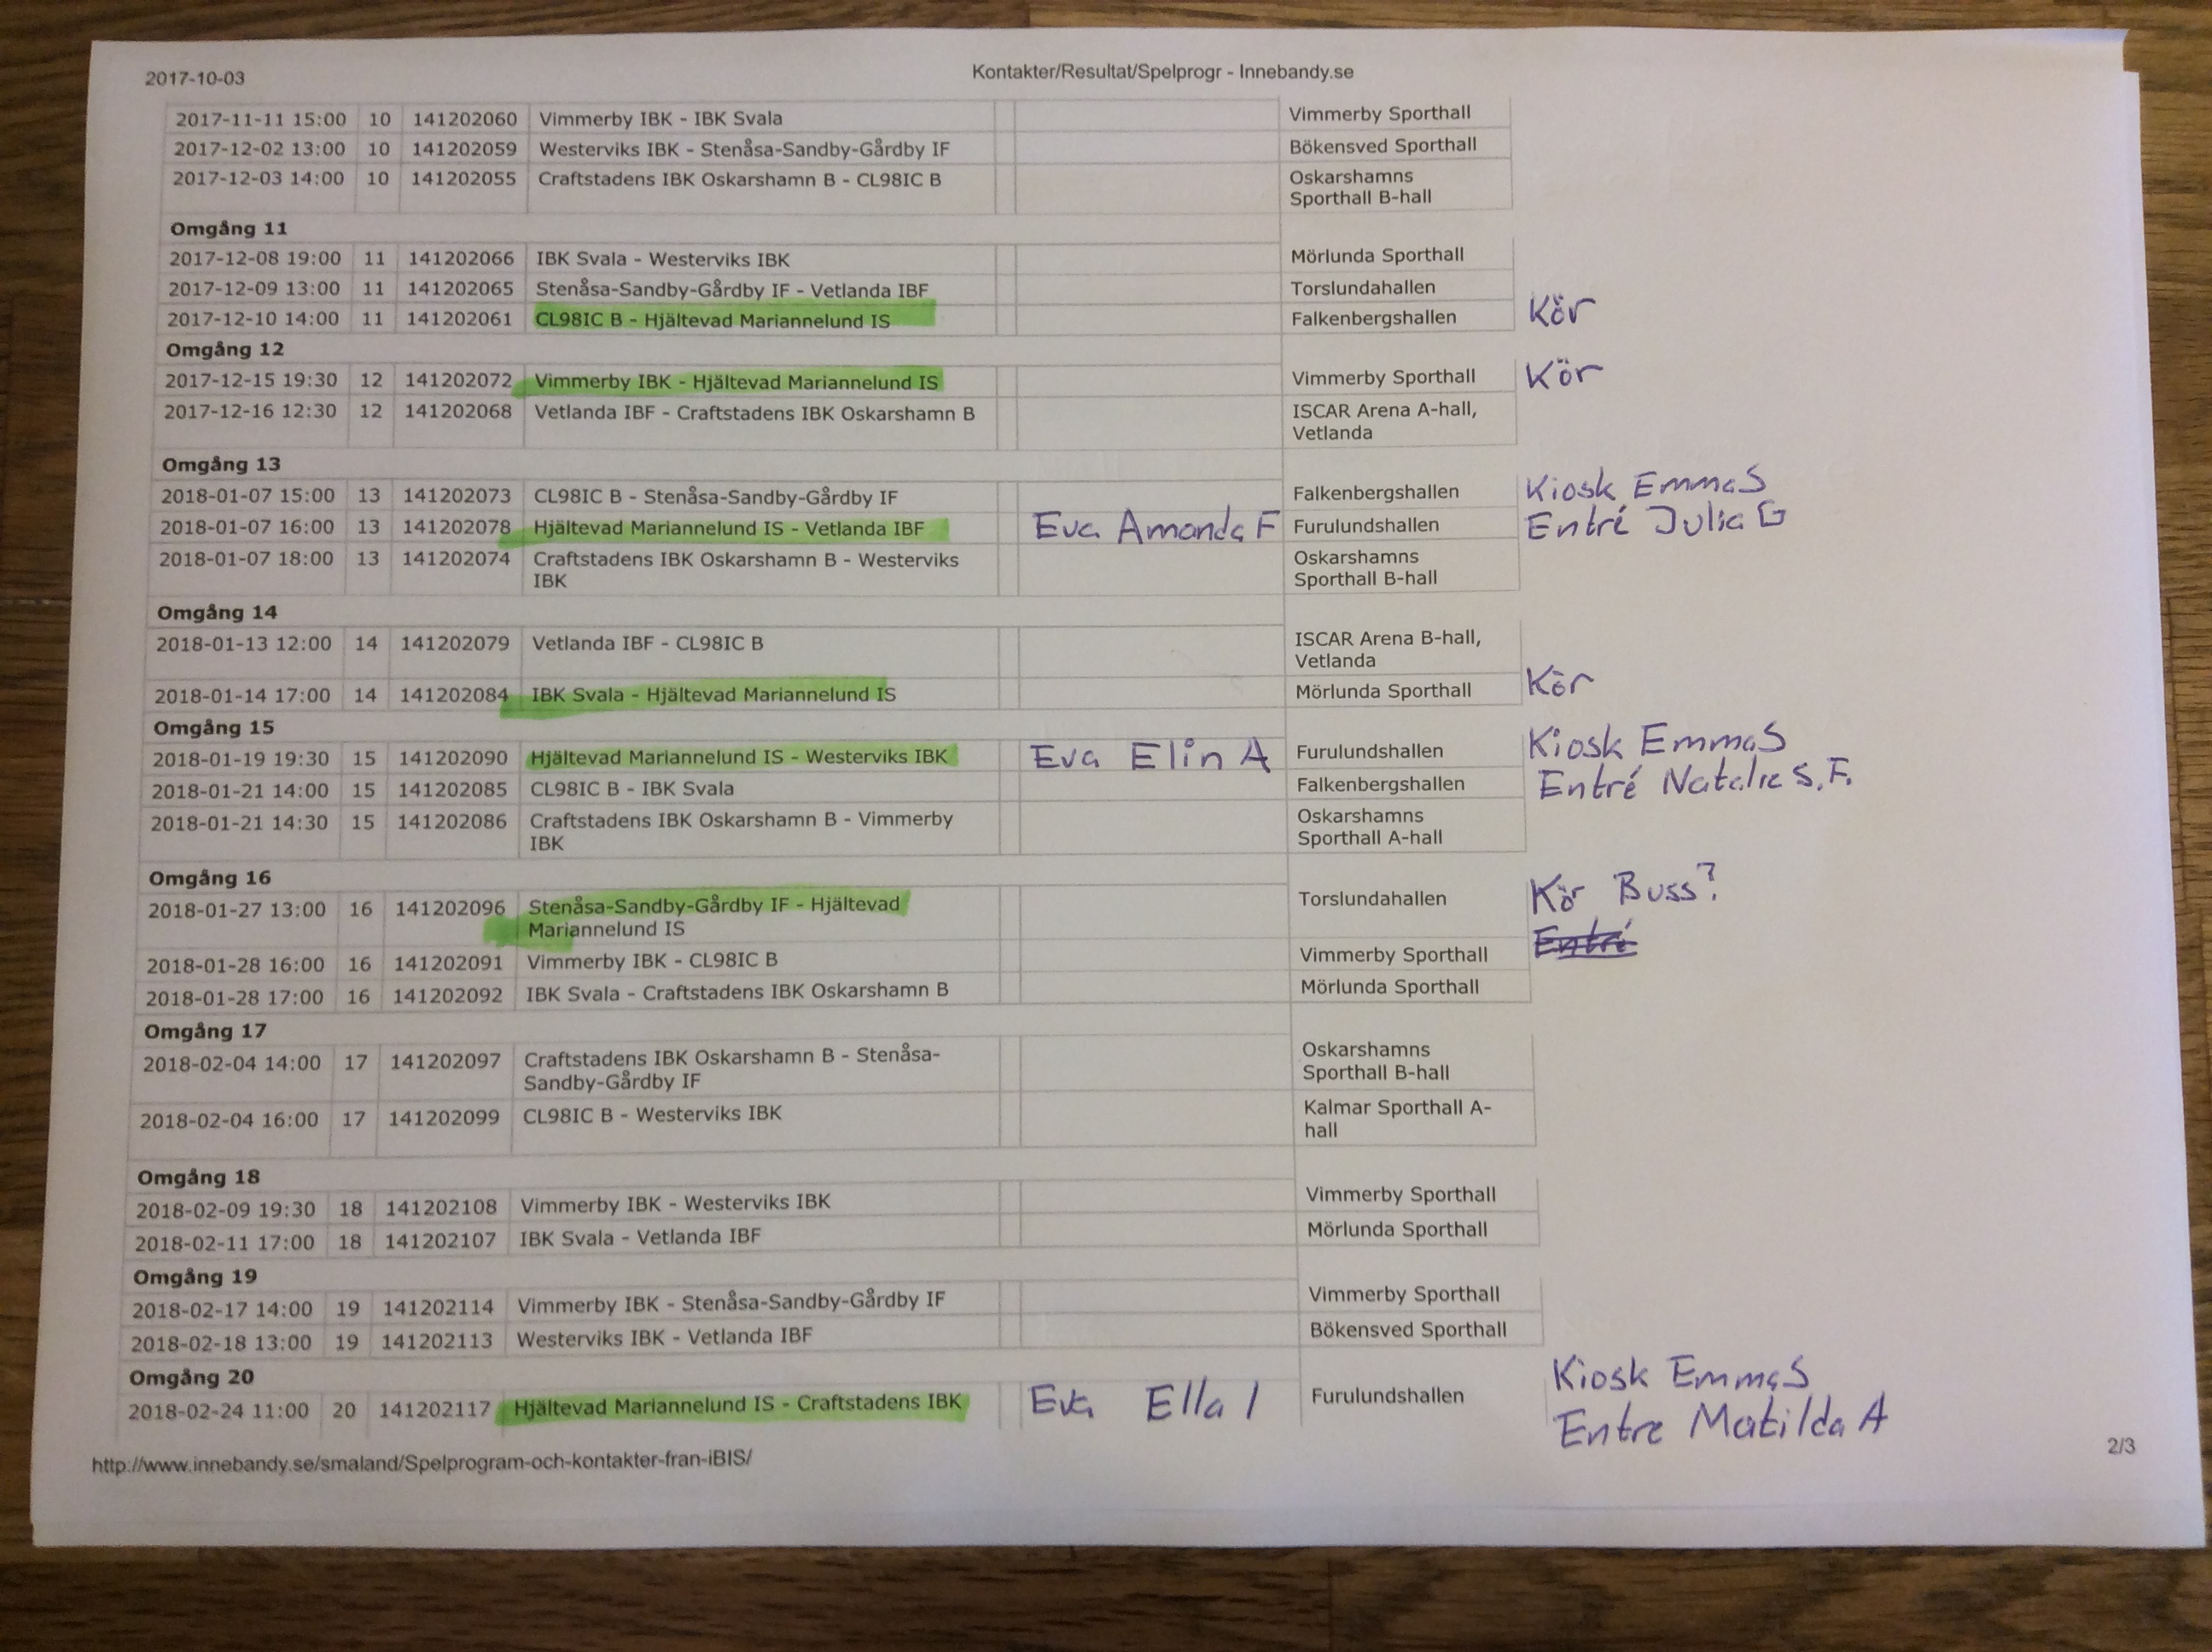 2017-10-03 Kontakter/Resultat/Spelprogr - Innebandy.se
2017-11-11 15:00 10 141202060 Vimmerby IBK - IBK Svala Vimmerby Sporthall
2017-12-02 13:00 10 141202059 Westerviks IBK - Stenåsa-Sandby-Gårdby IF Bökensved Sporthall
2017-12-03 14:00 10 141202055 Craftstadens IBK Oskarshamn B - CL98IC B Oskarshamns
Sporthall B-hall
Omgång 11
2017-12-08 19:00 11 141202066 IBK Svala - Westerviks IBK Mörlunda Sporthall
2017-12-09 13:00 11 141202065 Stenåsa-Sandby-Gårdby IF - Vetlanda IBF Torslundahallen
2017-12-10 14:00 11 141202061 CL98IC B - Hjältevad Mariannelund IS Falkenbergshallen Kör
Omgång 12
2017-12-15 19:30 12 141202072 Vimmerby IBK - Hjältevad Mariannelund IS Vimmerby Sporthall Kör
2017-12-16 12:30 12 141202068 Vetlanda IBF - Craftstadens IBK Oskarshamn B ISCAR Arena A-hall,
Vetlanda
Omgång 13
2018-01-07 15:00 13 141202073 CL98IC B - Stenåsa-Sandby-Gårdby IF Falkenbergshallen Kiosk Emma S
2018-01-07 16:00 13 141202078 Hjältevad Mariannelund IS - Vetlanda IBF Eva Amanda F Furulundshallen Entré Julia G
2018-01-07 18:00 13 141202074 Craftstadens IBK Oskarshamn B - Westerviks Oskarshamns
IBK Sporthall B-hall
Omgång 14
2018-01-13 12:00 14 141202079 Vetlanda IBF - CL98IC B ISCAR Arena B-hall,
Vetlanda
2018-01-14 17:00 14 141202084 IBK Svala - Hjältevad Mariannelund IS Mörlunda Sporthall Kör
Omgång 15
2018-01-19 19:30 15 141202090 Hjältevad Mariannelund IS - Westerviks IBK Eva Elin A Furulundshallen Kiosk Emma S
2018-01-21 14:00 15 141202085 CL98IC B - IBK Svala Falkenbergshallen Entré Natalie S.F.
2018-01-21 14:30 15 141202086 Craftstadens IBK Oskarshamn B - Vimmerby Oskarshamns
IBK Sporthall A-hall
Omgång 16
2018-01-27 13:00 16 141202096 Stenåsa-Sandby-Gårdby IF - Hjältevad Torslundahallen Kör Buss?
Mariannelund IS Entré
2018-01-28 16:00 16 141202091 Vimmerby IBK - CL98IC B Vimmerby Sporthall
2018-01-28 17:00 16 141202092 IBK Svala - Craftstadens IBK Oskarshamn B Mörlunda Sporthall
Omgång 17
2018-02-04 14:00 17 141202097 Craftstadens IBK Oskarshamn B - Stenåsa- Oskarshamns
Sandby-Gårdby IF Sporthall B-hall
2018-02-04 16:00 17 141202099 CL98IC B - Westerviks IBK Kalmar Sporthall A-
hall
Omgång 18
2018-02-09 19:30 18 141202108 Vimmerby IBK - Westerviks IBK Vimmerby Sporthall
2018-02-11 17:00 18 141202107 IBK Svala - Vetlanda IBF Mörlunda Sporthall
Omgång 19
2018-02-17 14:00 19 141202114 Vimmerby IBK - Stenåsa-Sandby-Gårdby IF Vimmerby Sporthall
2018-02-18 13:00 19 141202113 Westerviks IBK - Vetlanda IBF Bökensved Sporthall
Omgång 20 Kiosk Emma S
2018-02-24 11:00 20 141202117 Hjältevad Mariannelund IS - Craftstadens IBK Eva Ella I Furulundshallen Entre Matilda A
http://www.innebandy.se/smaland/Spelprogram-och-kontakter-fran-iBIS/ 2/3